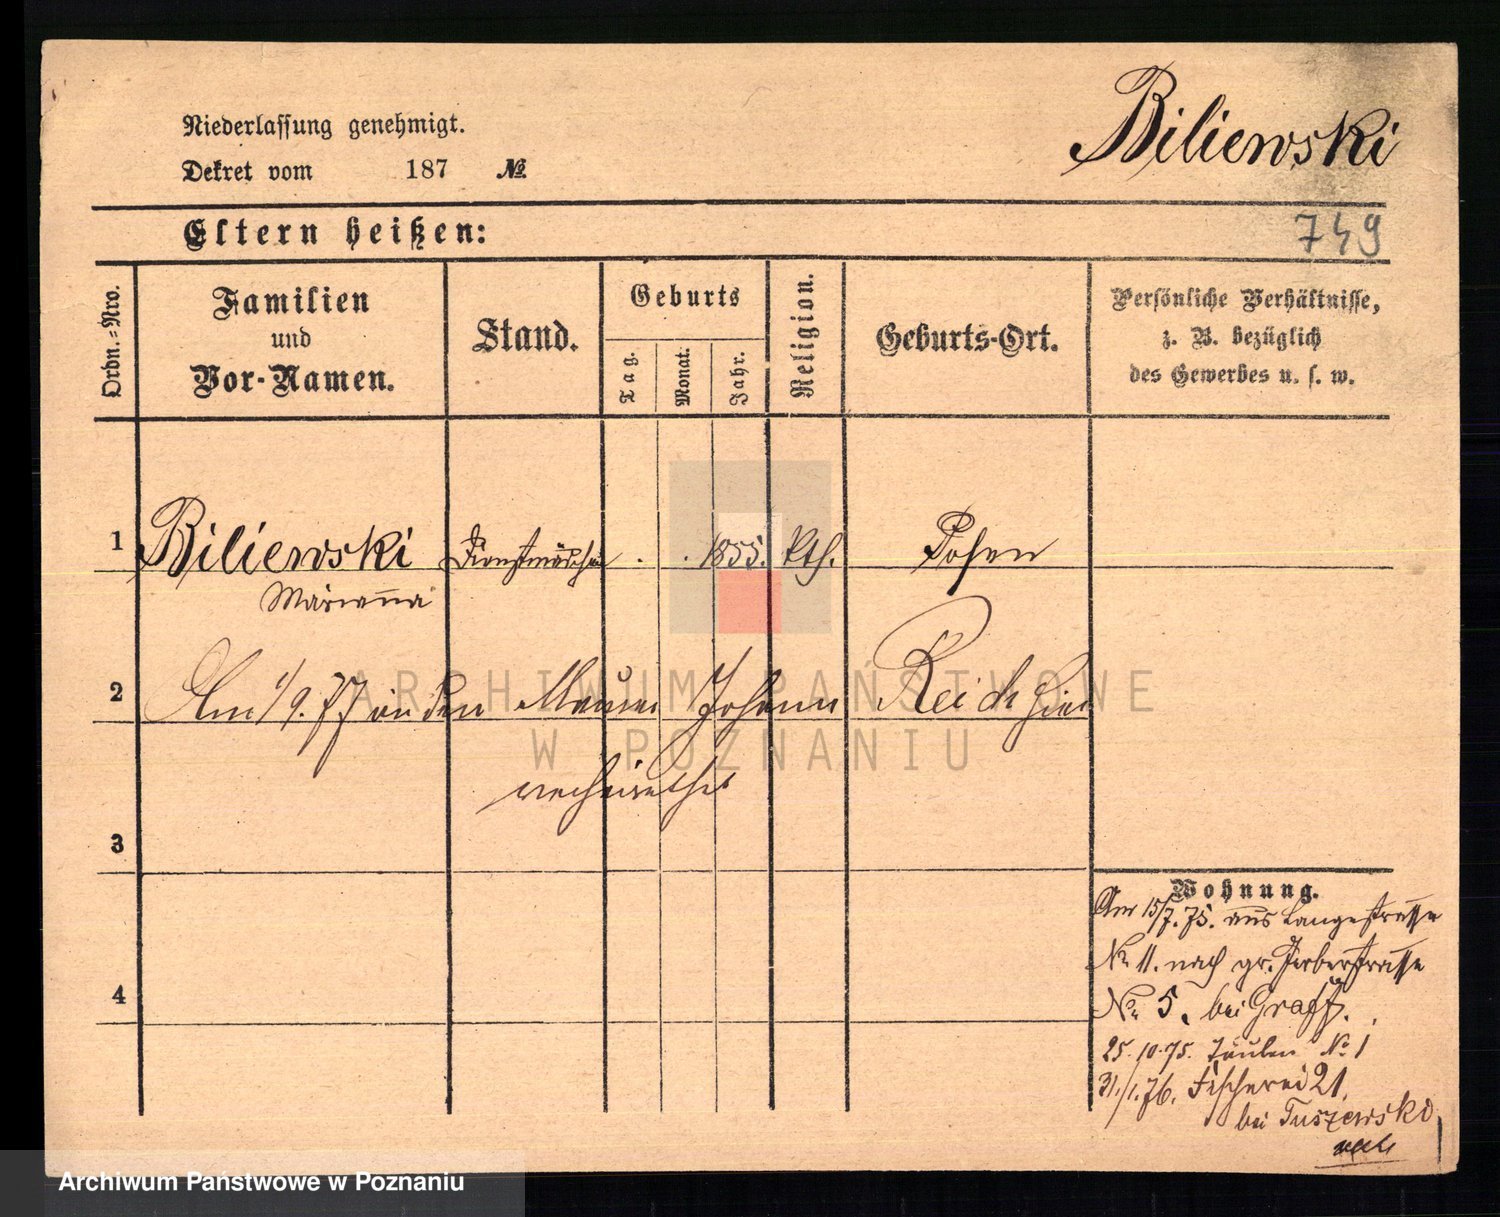 Biliewski
Niederlassung genehmigt.
Dekret vom 187 №
Eltern heißen:
749
Ordn.-Nro.
Familien
und
Vor-Namen.
Stand.
Geburts
Tag.
Monat.
Jahr.
Religion.
Geburts-Ort.
Persönliche Verhältnisse,
z. B. bezüglich
des Gewerbes u. s. w.
1 Biliewski Dienstmädchen . . 1855. kth. Posen
Marianna
2 Am 1/9.77 an den Maurer Johann Reich hier
verheirathet
3
4
Wohnung.
Am 15/7.75. aus Langestrasse
№ 11. nach gr. Gerberstrasse
№ 5. bei Graff.
25.10.75. Tauben № 1
31./1.76. Fischerei 21.
bei Tuszewski
ARCHIWUM PAŃSTWOWE
W POZNANIU
Archiwum Państwowe w Poznaniu